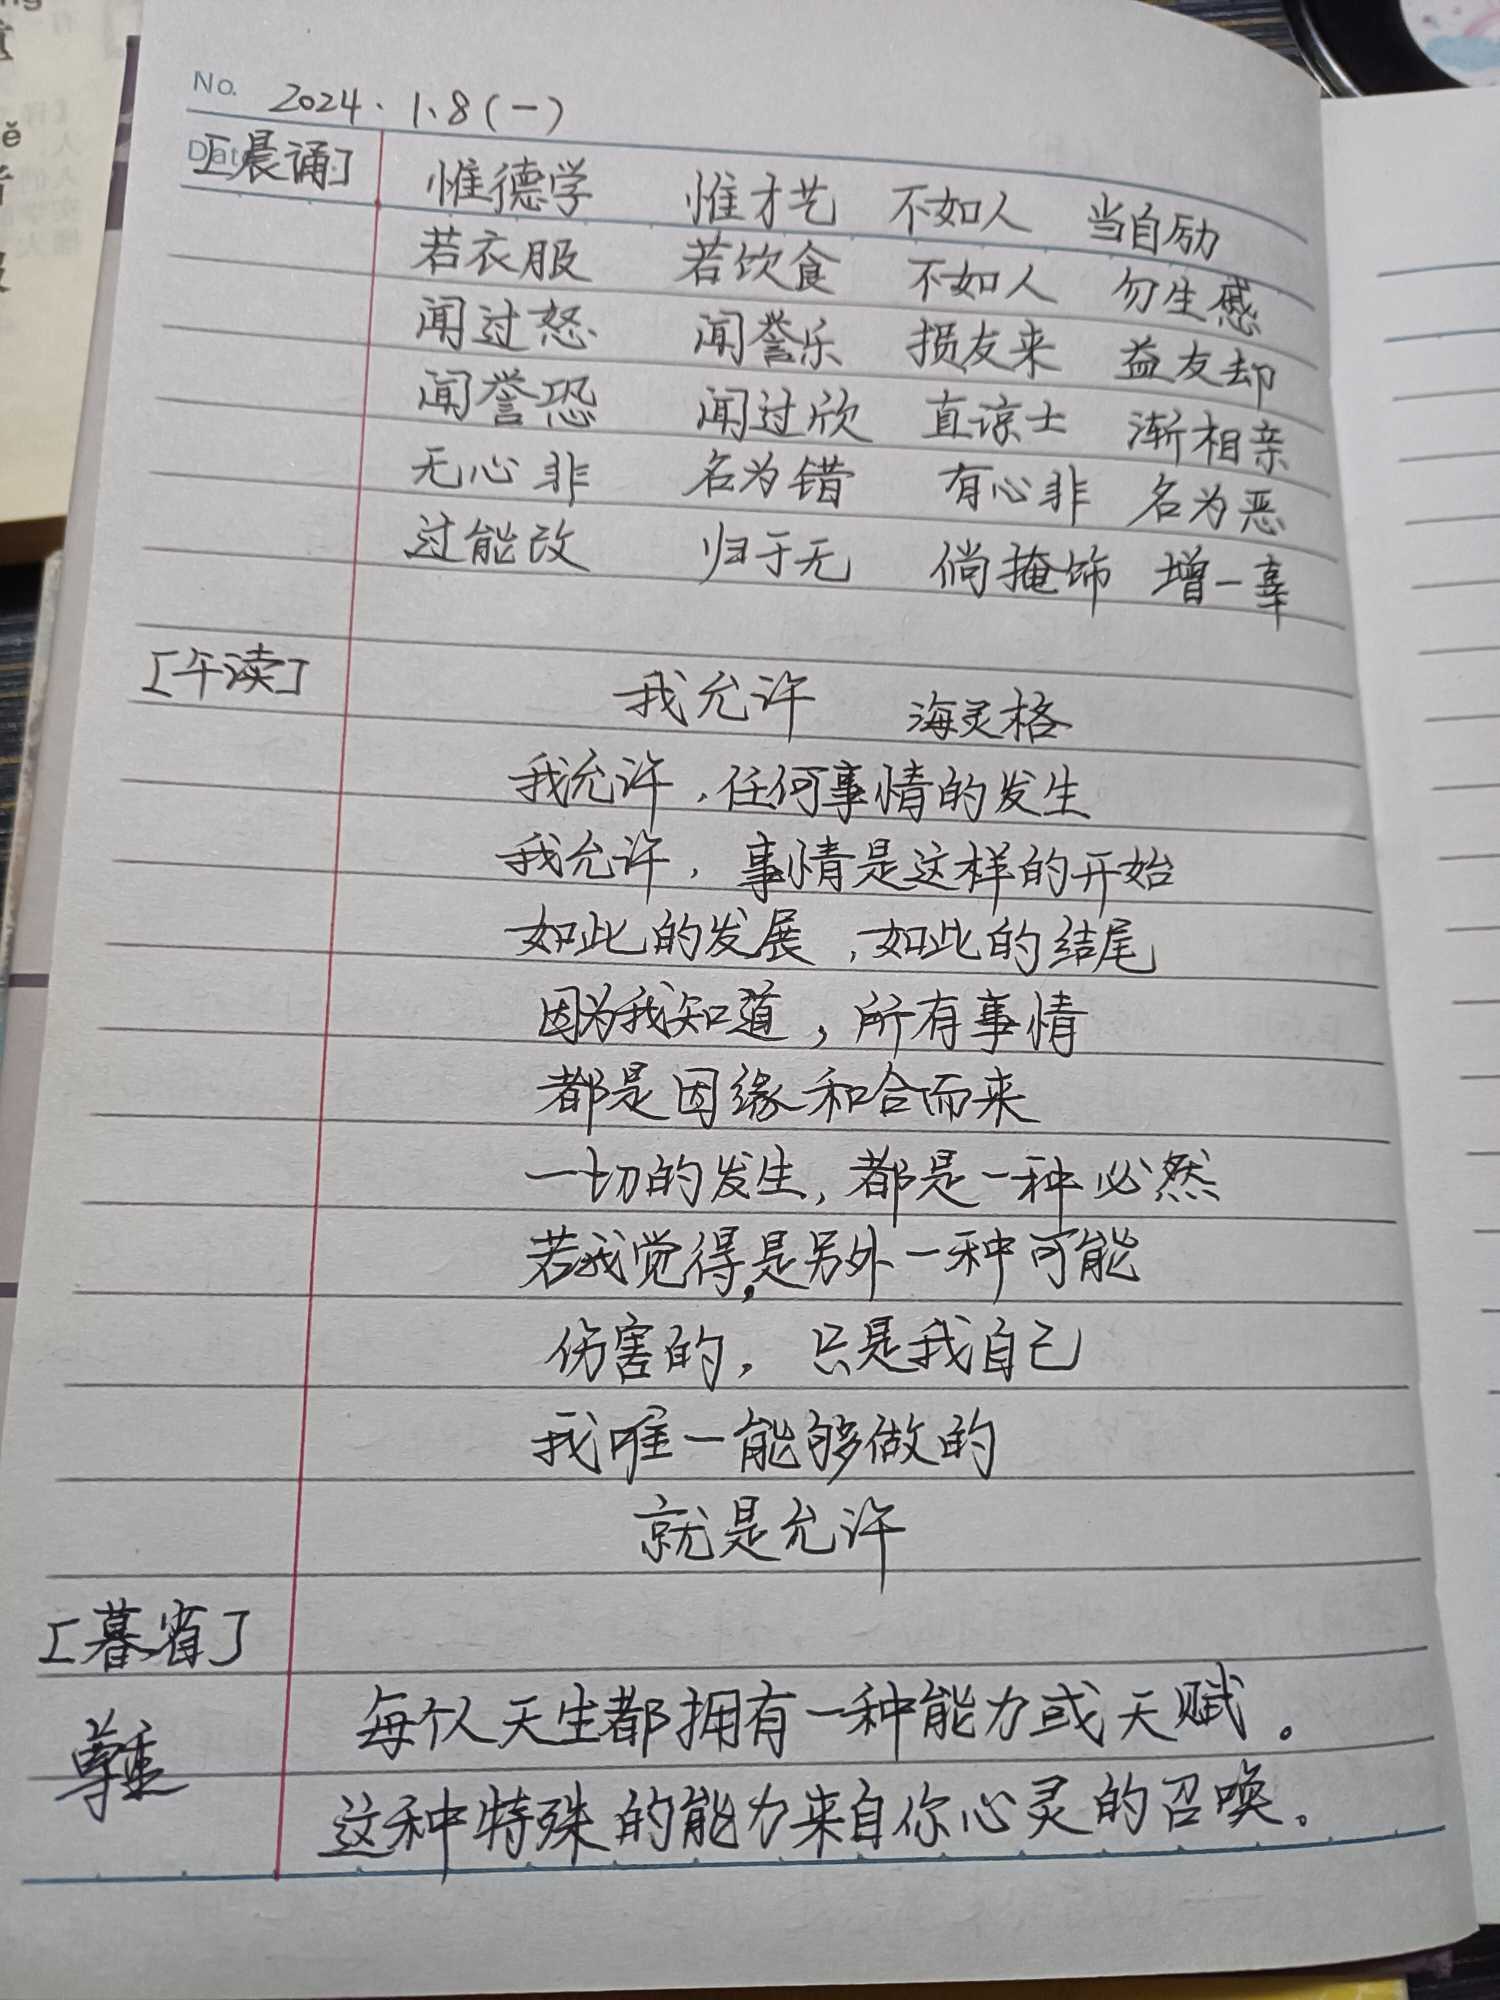 No. 2024.1.8(一)
Dat
[晨诵] 惟德学 惟才艺 不如人 当自励
若衣服 若饮食 不如人 勿生慼
闻过怒 闻誉乐 损友来 益友却
闻誉恐 闻过欣 直谅士 渐相亲
无心非 名为错 有心非 名为恶
过能改 归于无 倘掩饰 增一辜
[午读]
我允许 海灵格
我允许,任何事情的发生
我允许,事情是这样的开始
如此的发展,如此的结尾
因为我知道,所有事情
都是因缘和合而来
一切的发生,都是一种必然
若我觉得,是另外一种可能
伤害的,只是我自己
我唯一能够做的
就是允许
[暮省]
每个人天生都拥有一种能力或天赋。
这种特殊的能力来自你心灵的召唤。